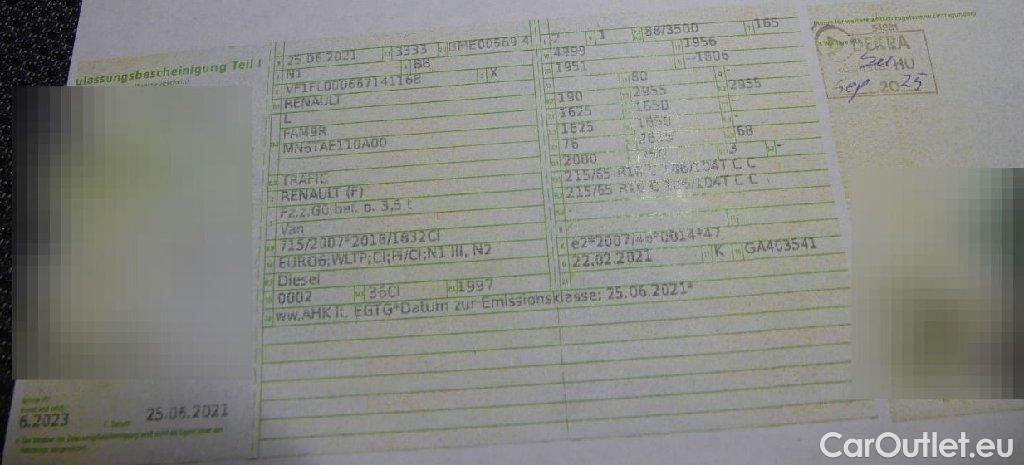 ulassungsbescheinigung Teil I
25.06.2021 3333 BME00569 4
N1 BB
VF1FL000667141168 X
RENAULT
L
FAM9R
MN6TAE110A00
TRAFIC
RENAULT (F)
Fz.z.Gü.bef. b. 3,5 t
Van
715/2007*2018/1832CI
EURO6;WLTP;CI;PI/CI;N1 III, N2
Diesel
0002 36CI 1997
ww.AHK lt. EGTG*Datum zur Emissionsklasse: 25.06.2021*
2 1 88/3500 165
4999 1956
1951 --1806
80
190 2955 2955
1625 1650 -
1625 1650 -
76 68
2000 3 -
215/65 R16 C 106/104T C C
215/65 R16 C 106/104T C C
-
-
e2*2007/46*0014*47
22.02.2021 K GA403541
DEKRA
HU
Sep 2025
6.2023 25.06.2021
CarOutlet.eu